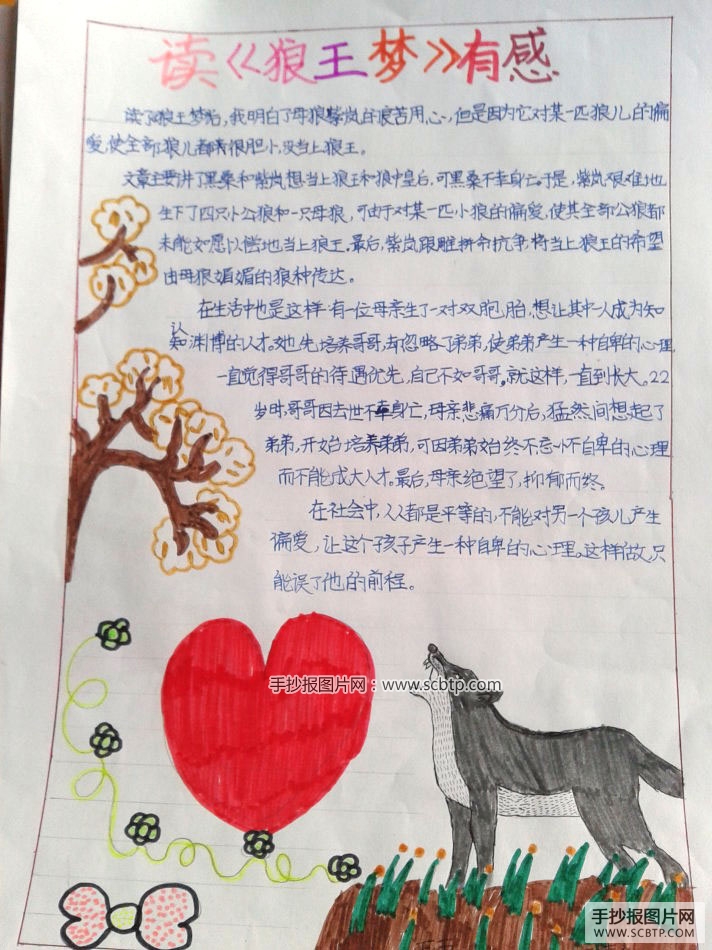 读《狼王梦》有感
读了狼王梦后，我明白了母狼紫岚的良苦用心，但是因为它对某一匹狼儿的偏
爱，使全部狼儿都很胆小，没当上狼王。
文章主要讲了黑桑和紫岚想当上狼王和狼中皇后，可黑桑不幸身亡。于是，紫岚艰难地
生下了四只小公狼和一只母狼，可由于对某一匹小狼的偏爱，使其全部公狼都
未能如愿以偿地当上狼王。最后，紫岚跟雕拼命抗争，将当上狼王的希望
由母狼媚媚的狼种传达。
在生活中也是这样：有一位母亲生了一对双胞胎，想让其中一人成为知
认
知渊博的人才。她先培养哥哥，却忽略了弟弟，使弟弟产生一种自卑的心理，
一直觉得哥哥的待遇优先，自己不如哥哥。就这样，一直到长大。22
岁时，哥哥因去世不幸身亡，母亲悲痛万分后，猛然间想起了
弟弟，开始培养弟弟，可因弟弟始终不忘小不自卑的心理
而不能成大人才。最后，母亲绝望了，抑郁而终。
在社会中，人人都是平等的，不能对另一个孩儿产生
偏爱，让这个孩子产生一种自卑的心理。这样做，只
能误了他的前程。
手抄报图片网：www.scbtp.com
手抄报图片网
WWW.SCBTP.COM